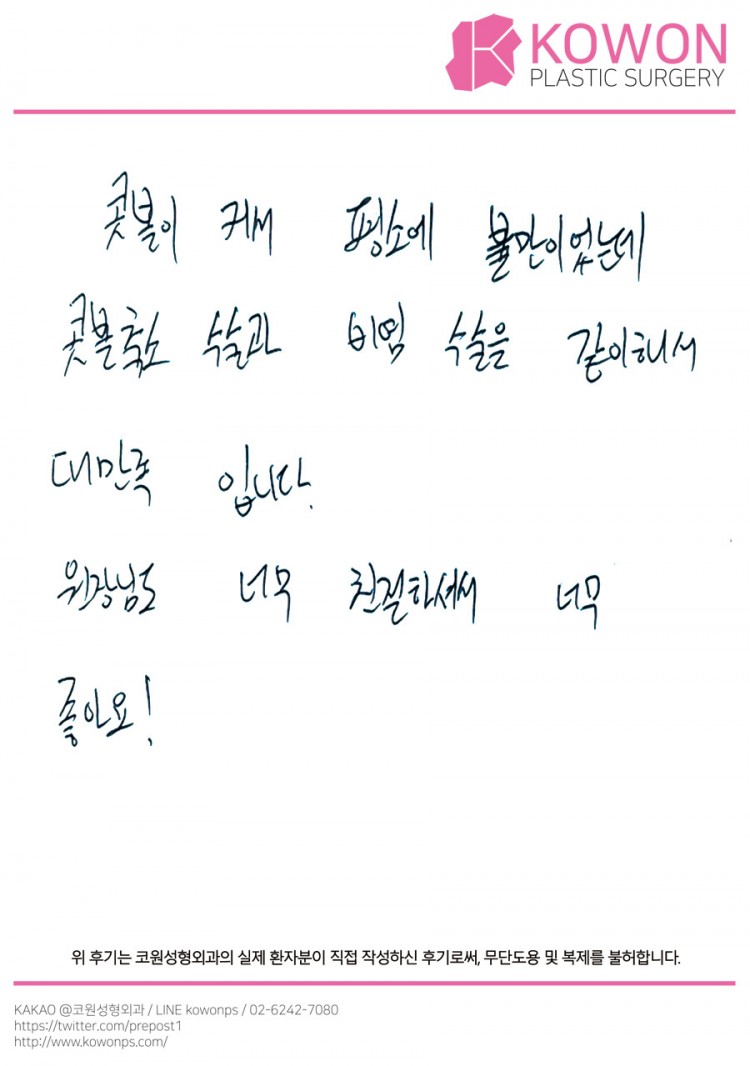 KOWON
PLASTIC SURGERY
콧볼이 커서 평소에 불만이었는데
콧볼축소 수술과 비염 수술을 같이해서
대만족 입니다.
원장님도 너무 친절하셔서 너무
좋아요!
위 후기는 코원성형외과의 실제 환자분이 직접 작성하신 후기로써, 무단도용 및 복제를 불허합니다.
KAKAO @코원성형외과 / LINE kowonps / 02-6242-7080
https://twitter.com/prepost1
http://www.kowonps.com/